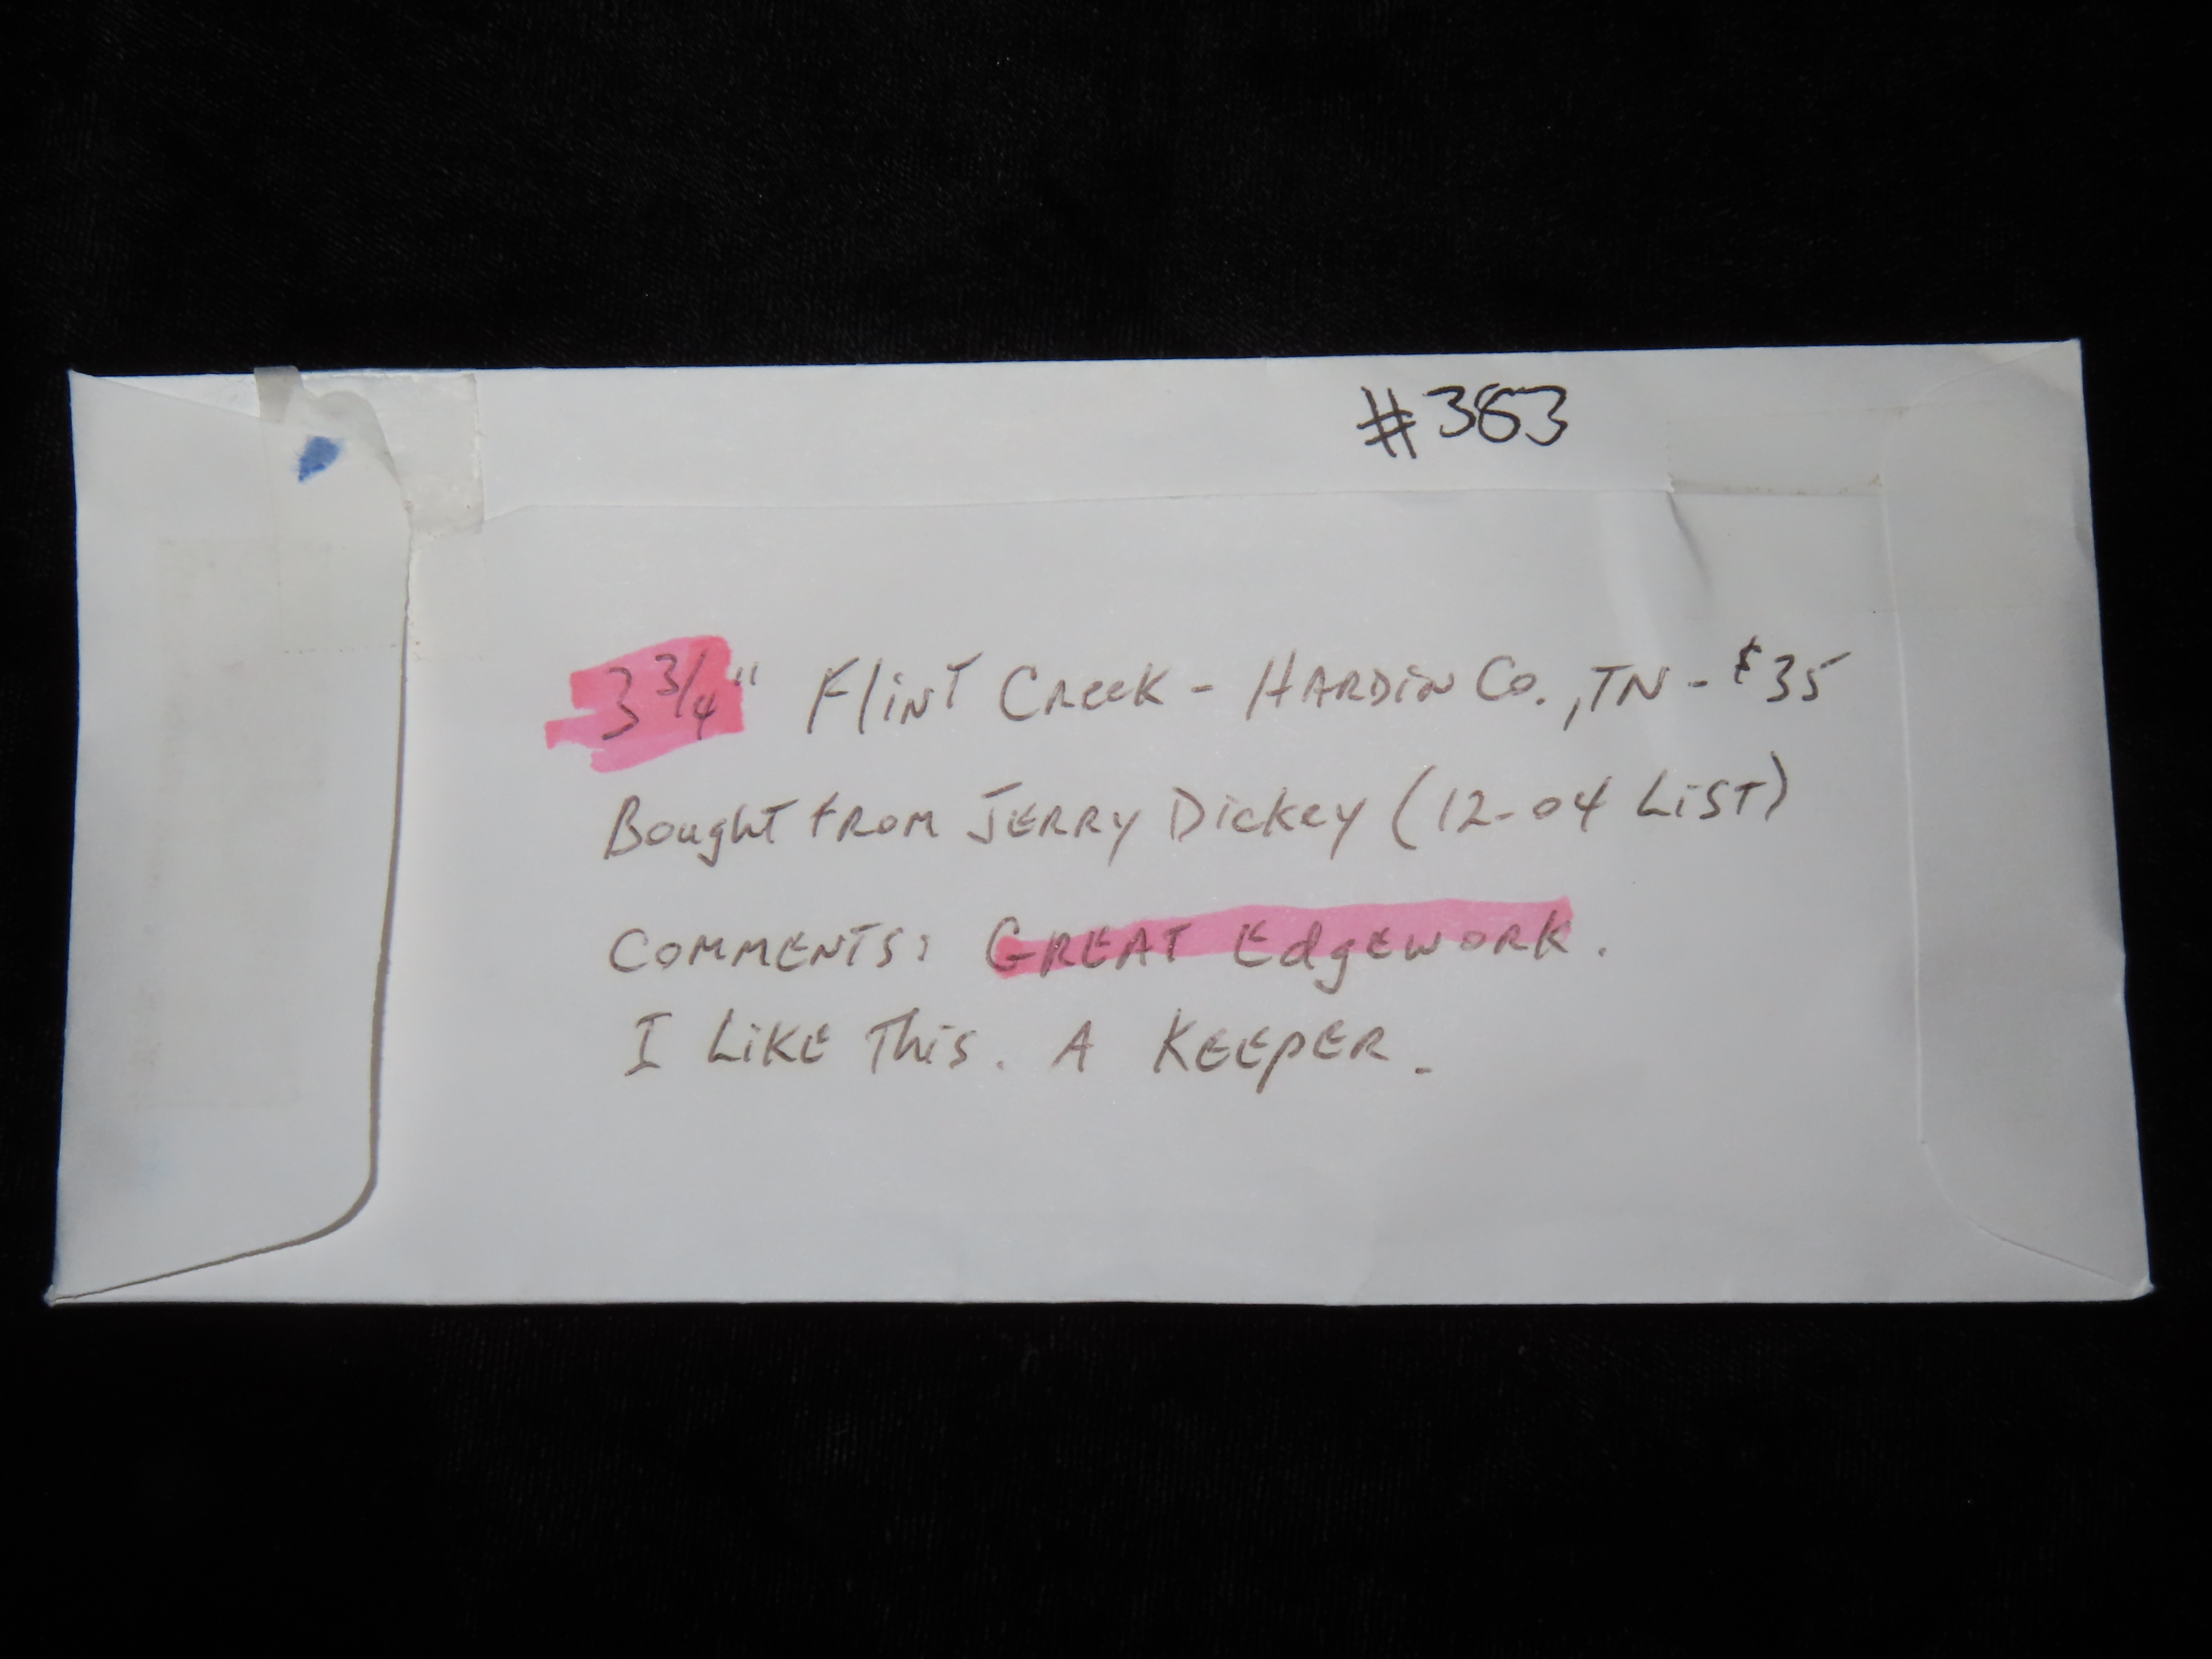 #363
3 3/4" Flint Creek - Hardin Co., TN - $35
Bought from Jerry Dickey (12-04 List)
Comments: Great Edgework.
I Like This. A Keeper.